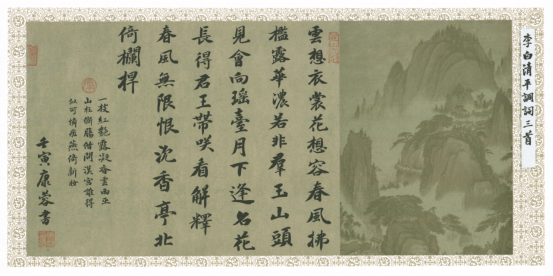 李白清平調詞三首
雲想衣裳花想容春風拂
檻露華濃若非羣玉山頭
見會向瑶臺月下逢名花
長得君王帶咲看解釋
春風無限恨沈香亭北
倚欄桿
一枝紅艷露凝香雲雨巫
山枉斷腸借問漢宮誰得
似可憐飛燕倚新妝
壬寅康蓉書